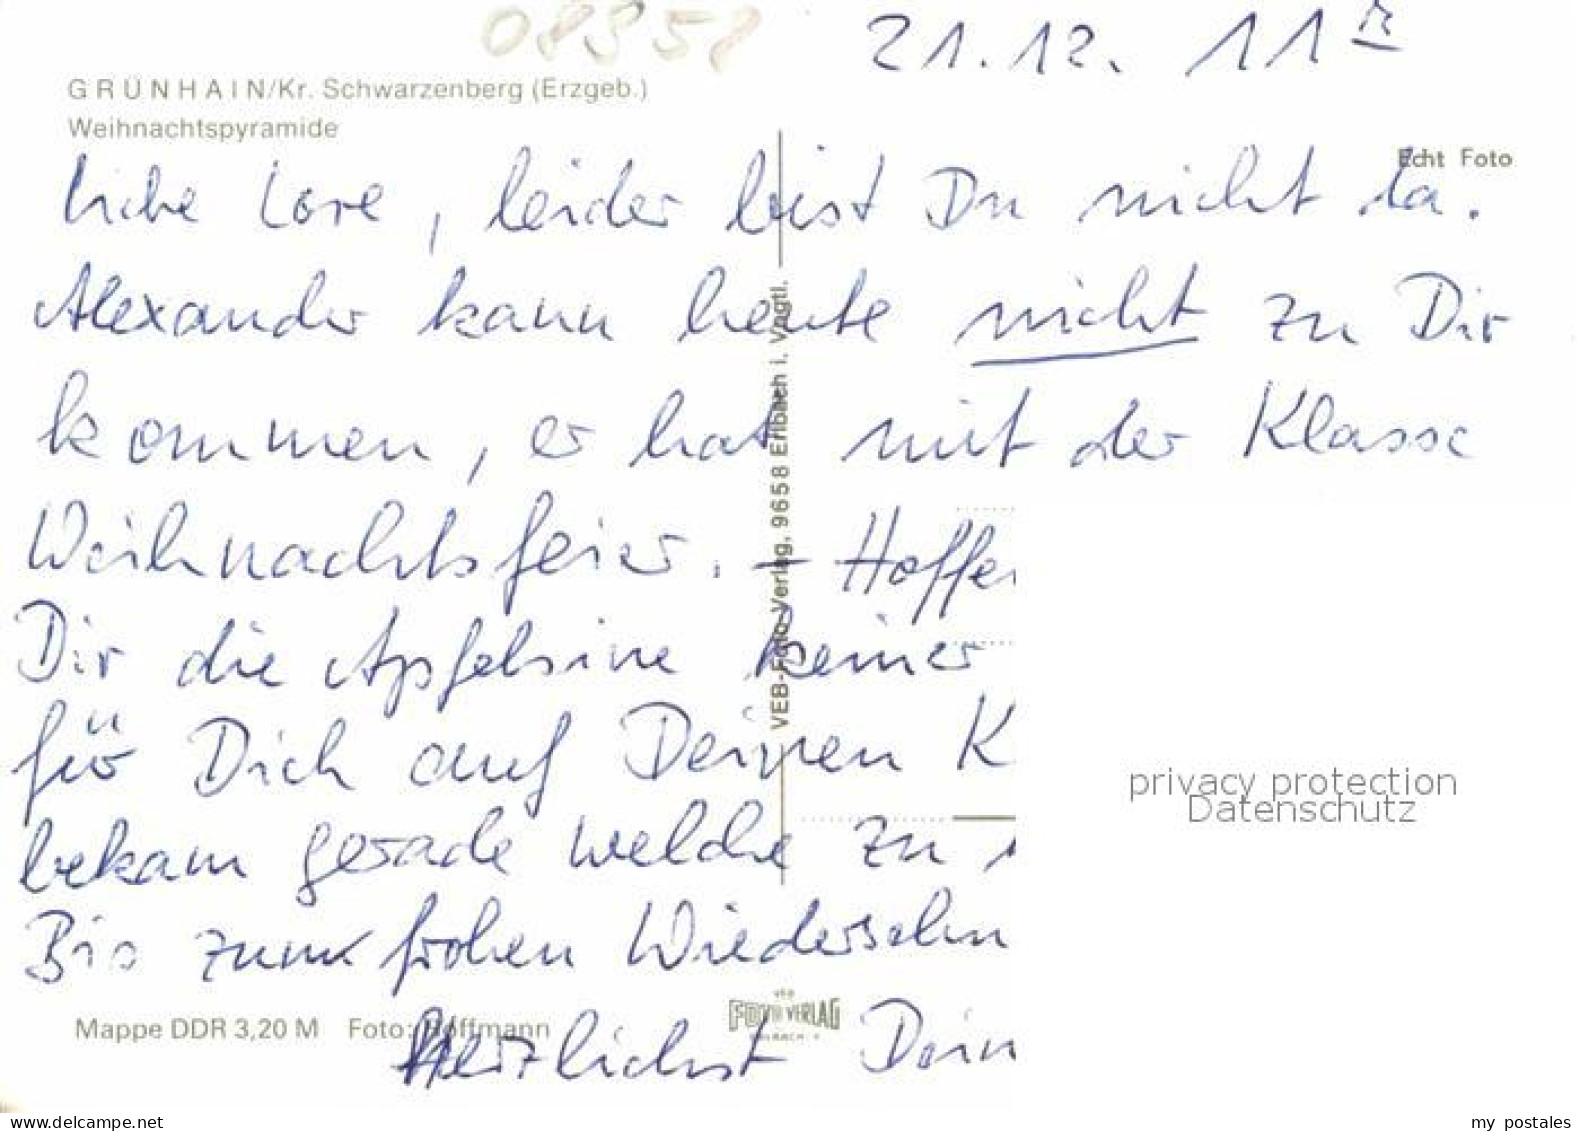 08358
21.12. 11
GRÜNHAIN/Kr. Schwarzenberg (Erzgeb.)
Weihnachtspyramide
Echt Foto
Liebe Lore, leider bist Du nicht da.
Alexander kann heute nicht zu Dir
kommen, er hat mit der Klasse
Weihnachtsfeier. – Hoffen
Dir die Apfelsine keiner
für Dich auf Deinen K
bekam gerade welche zu
Bis zum frohen Wiedersehn
Herzlichst Dein
VEB-Foto-Verlag, 9658 Erlbach i. Vogtl.
VEB
FOTO VERLAG
ERLBACH i. V.
Mappe DDR 3,20 M Foto: Hoffmann
privacy protection
Datenschutz
www.delcampe.net
my postales